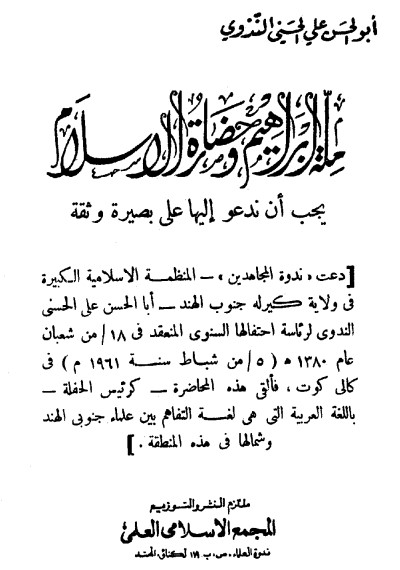 أبو الحسن علي الحسني الندوي
ملة إبراهيم وحضارة الإسلام
يجب أن ندعو إليها على بصيرة وثقة
[ دعت « ندوة المجاهدين » ــ المنظمة الاسلامية الكبيرة
فى ولاية كيرله جنوب الهند ــ أبا الحسن على الحسنى
الندوى لرئاسة احتفالها السنوى المنعقد فى ١٨/من شعبان
عام ١٣٨٠ ه ( ٥/ من شباط سنة ١٩٦١ م ) فى
كالى كوت ، فألقى هذه المحاضرة ــ كرئيس الحفلة ــ
باللغة العربية التى هى لغة التفاهم بين علماء جنوبى الهند
وشمالها فى هذه المنطقة . ]
ملتزم النشر والتوزيع
المجمع الاسلامى العلمى
ندوة العلماء ص. ب ١١٩ لكناؤ. الهند